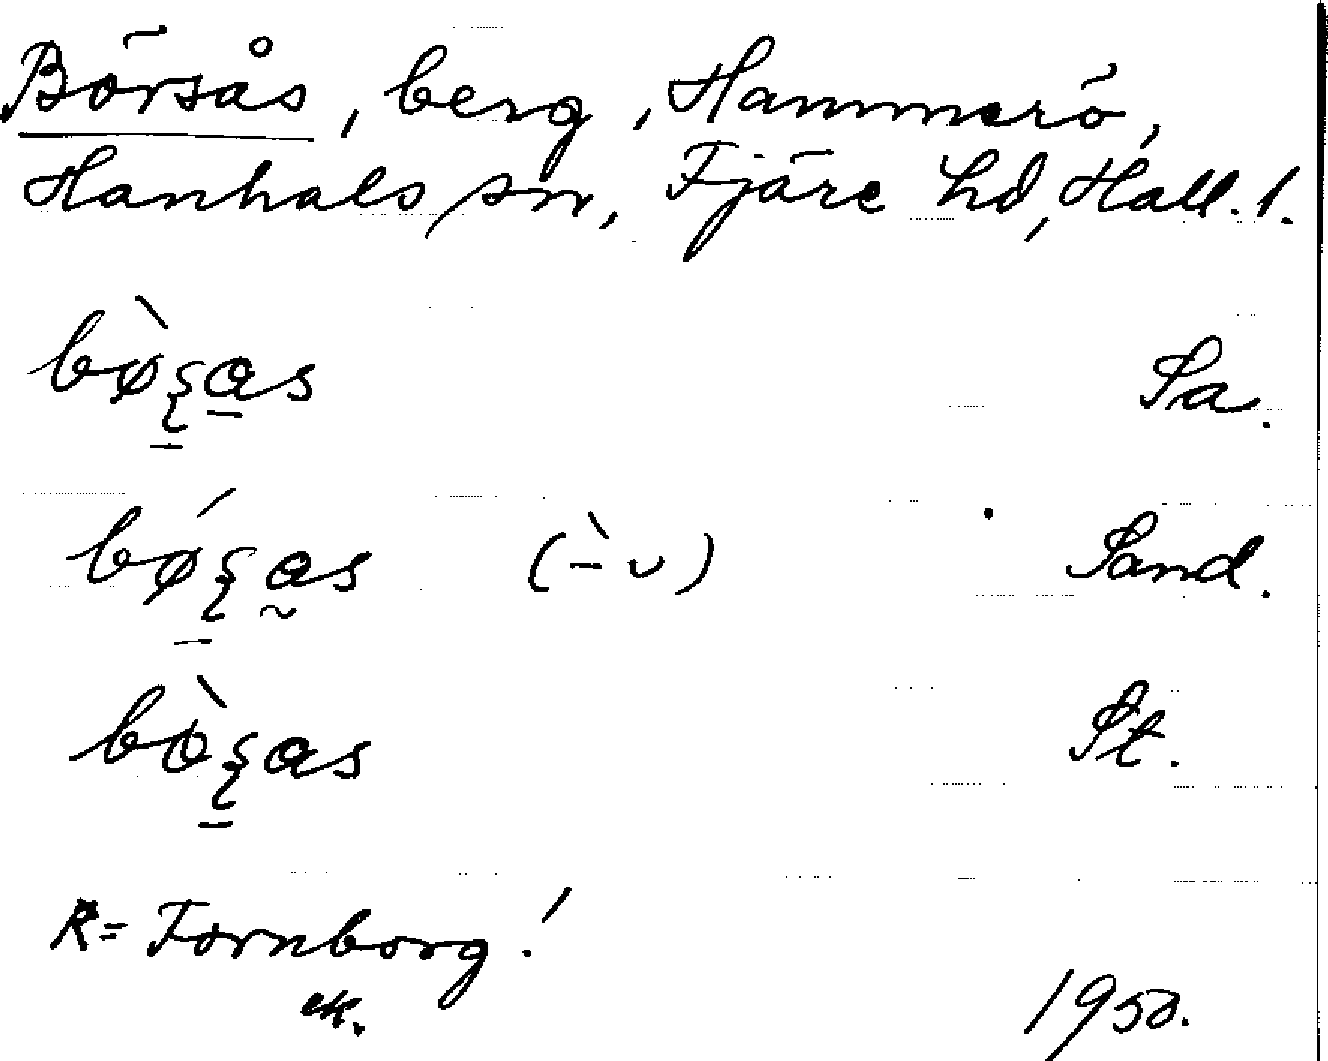 Börsås, berg, Hammerö,
Hanhals sn, Fjäre hd, Hall. l.
bø̀ʂas Sa.
bǿʂas (-̀ ᴗ) Sand.
bòʂas St.
R = Fornborg!
1950.